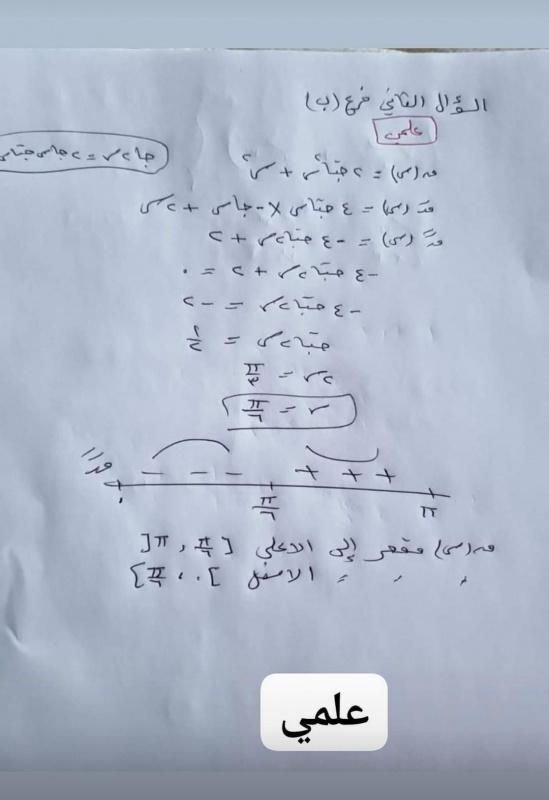 السؤال الثاني فرع (ب)
علمي
جا٢س = ٢جاس جتاس
ق(س) = ٢جتا٢س + س٢
قَ(س) = ٤جتاس × -جاس + ٢س
قً(س) = -٤جتا٢س + ٢
-٤جتا٢س + ٢ = ٠
-٤جتا٢س = -٢
جتا٢س = ١/٢
٢س = π/٣
س = π/٦
قً - - - + + +
٠ π/٦ π
ق(س) مقعر إلى الاعلى [π/٦ , π[
〃 〃 〃 الاسفل ]٠ , π/٦]
علمي